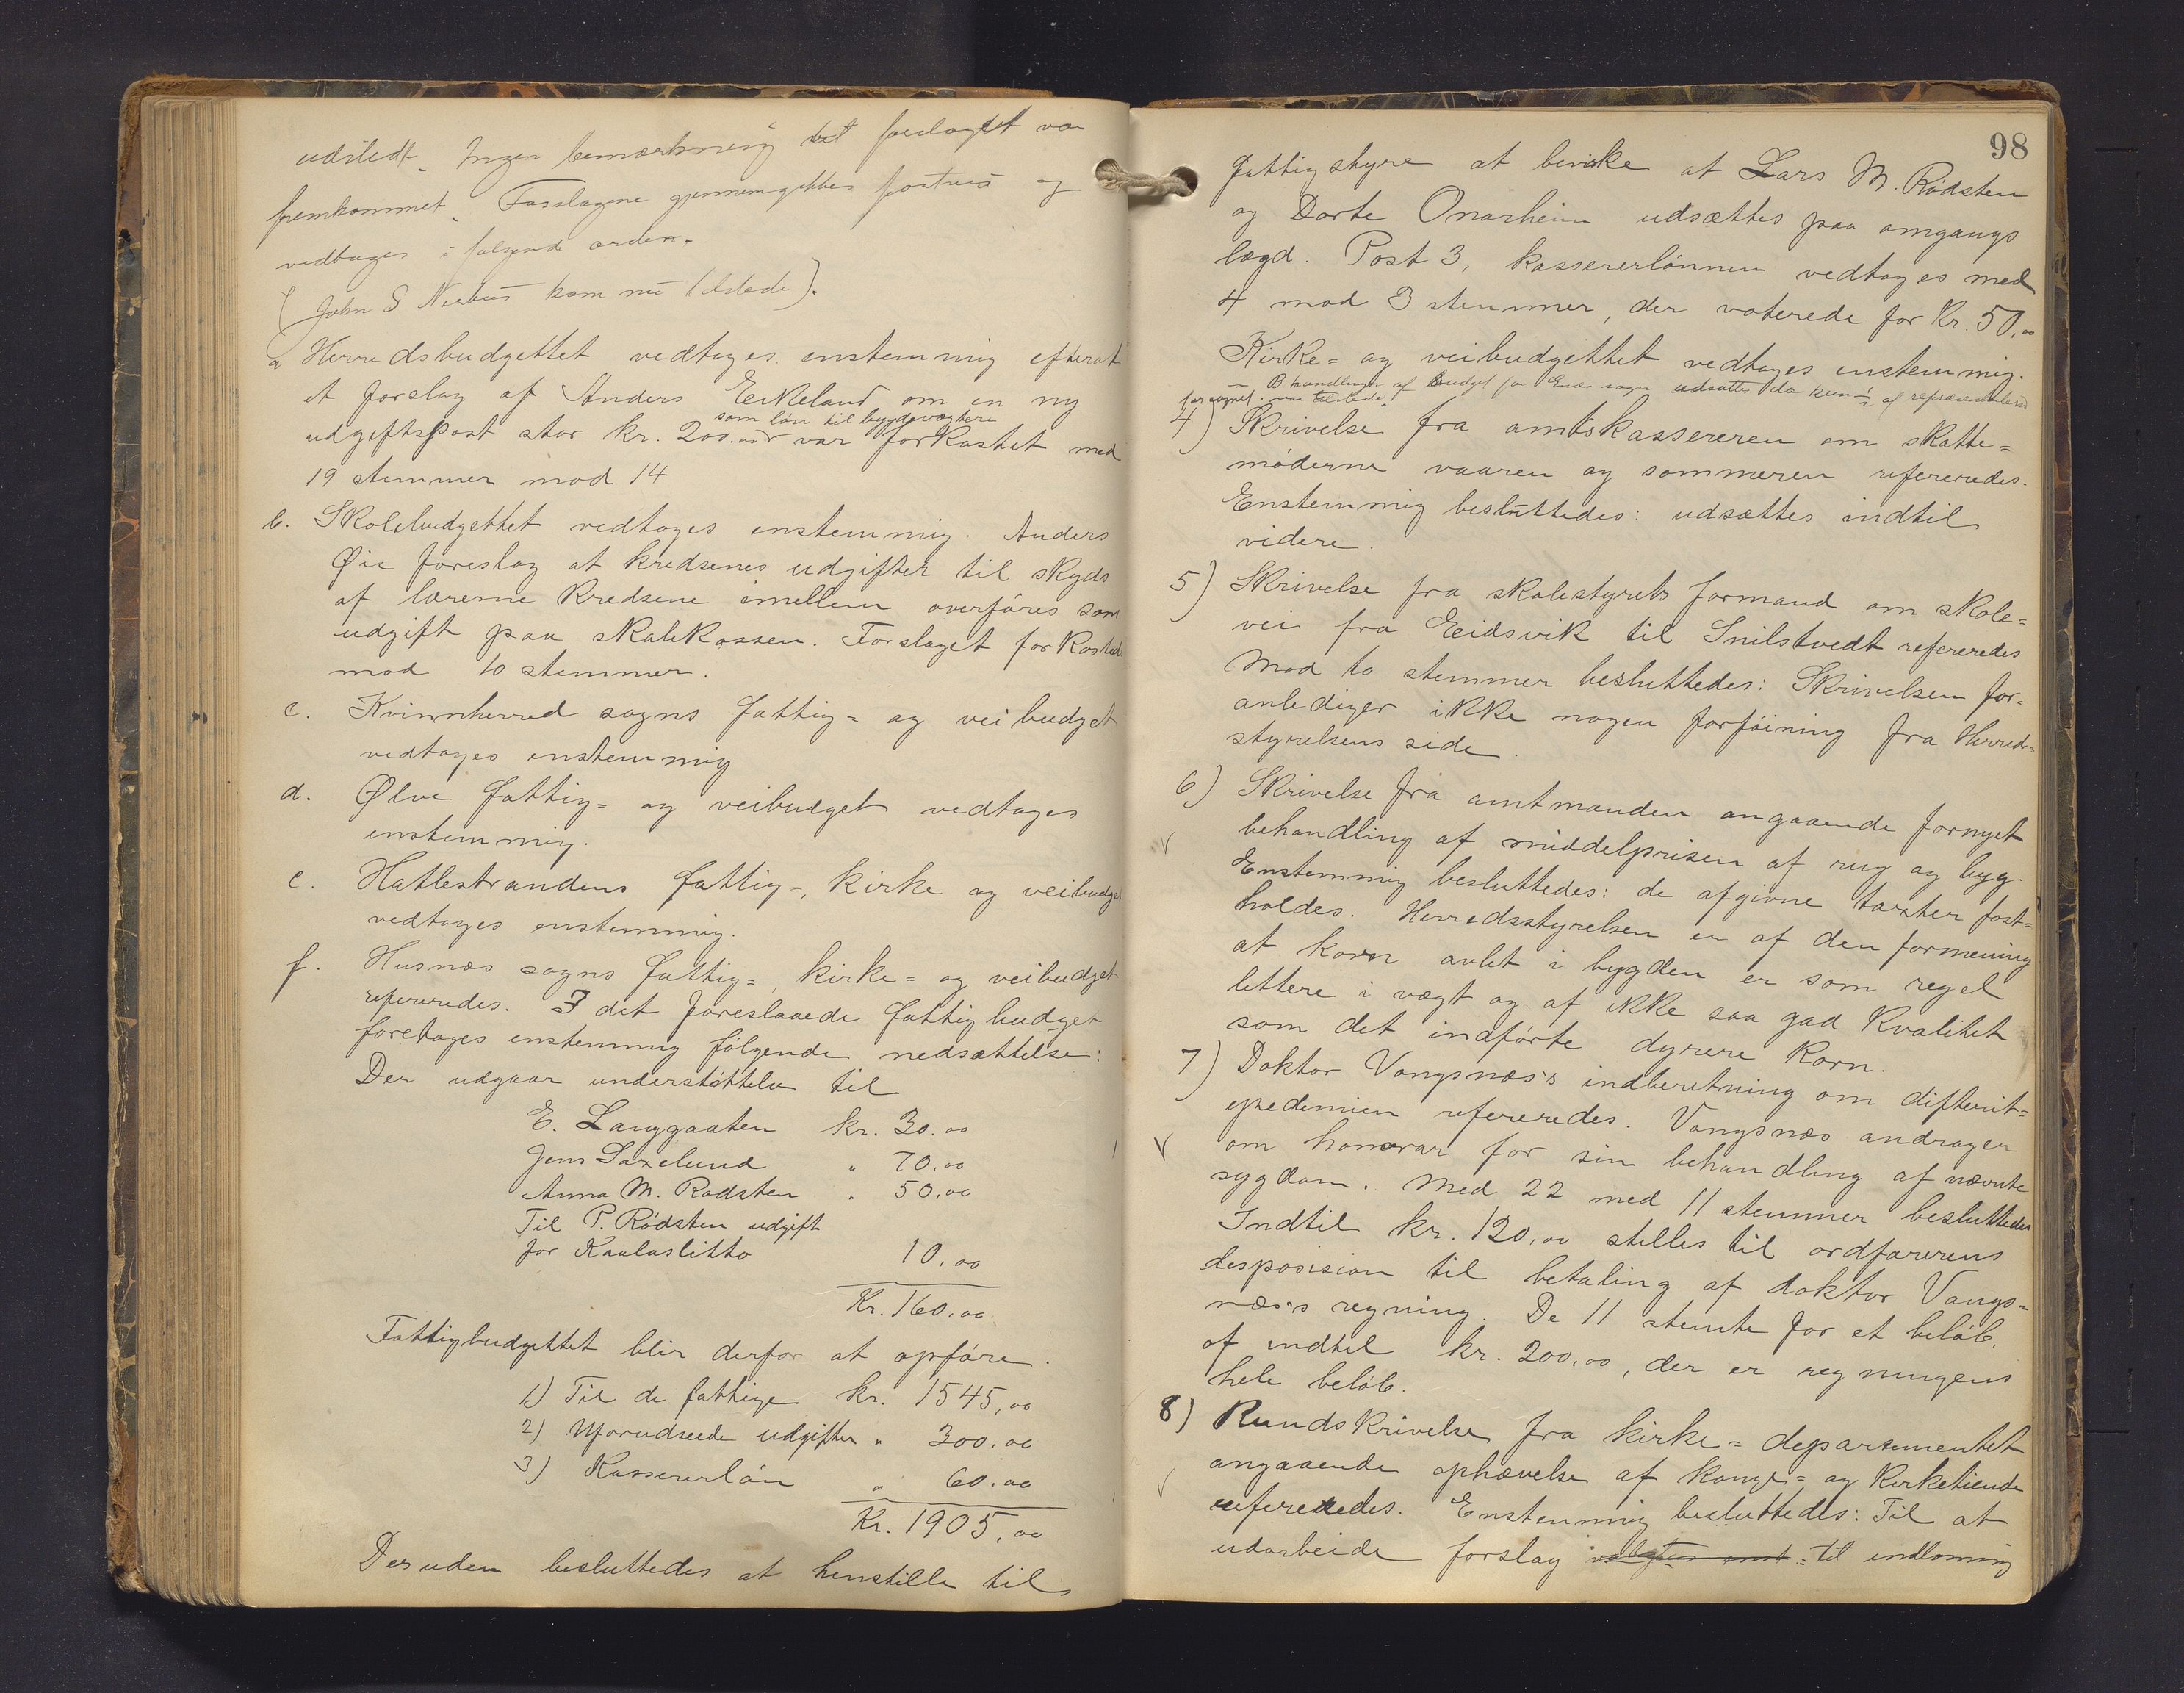 udstedt. Ingen bemærkning til forslaget var
fremkommet. Forslagene gjennemgikkes postvis og
vedtages i følgende orden.
(John S Neshus kom nu tilstede).
a Herredsbudgettet vedtages enstemmig efterat
et forslag af Anders Eikeland om en ny
som løn til bygdevægtere
udgiftspost stor kr. 200.00 var forkastet med
19 stemmer mod 14
b. Skolebudgettet vedtages enstemmig. Anders
Øie foreslog at kredsenes udgifter til skyds
af lærerne kredsene imellem overføres som
udgift paa skolekassen. Forslaget forkasted
mod 10 stemmer.
c. Kvinnherred sogns fattig= og veibudget
vedtages enstemmig
d. Ølve fattig= og veibudget vedtages
enstemmig.
e. Hatlestrandens fattig-, kirke og veibudget
vedtages enstemmig.
f. Husnæs sogns fattig=, kirke= og veibudget
refereredes. I det foreslaaede fattigbudget
foretages enstemmig følgende nedsættelse:
Der udgaar understøttelse til
E. Langgaaten kr. 30.00
Jens Saxelund " 70.00
Anna M. Rødsten " 50,00
Til P. Rødsten udgift
for Kaulaslitto 10,00
Kr. 160.00
Fattigbudgettet blir derfor at opføre.
1) Til de fattige kr. 1545,00
2) Uforudseede udgifter " 300.00
3) Kassererløn " 60.00
Kr. 1905,00
Desuden besluttedes at henstille til
98
fattigstyre at bevirke at Lars M. Rødsten
og Dorte Onarheim udsættes paa omgangs
lægd. Post 3, kassererlønnen vedtages med
4 mod 3 stemmer, der voterede for Kr. 50,00
Kirke= og veibudgettet vedtages enstemmig.
= Behandlingen af budget for Enæs sogn udsattes da kun 1/2 af repræsentanterne
for sognet var tilstede.
4) Skrivelse fra amtskassereren om skatte=
møderne vaaren og sommeren refereredes.
Enstemmig besluttedes: udsættes indtil
videre.
5) Skrivelse fra skolestyrets formand om skole=
vei fra Eeidsvik til Snilstvedt refereredes
Mod to stemmer besluttedes: Skrivelsen for=
anlediger ikke nogen forføining fra Herred=
styrelsens side.
6) Skrivelse fra amtmanden angaaende fornyet
behandling af middelprisen af rug og byg.
Enstemmig besluttedes: de afgivne taxter fast=
holdes. Herredsstyrelsen er af den formening
at korn avlet i bygden er som regel
lettere i vægt og af ikke saa god kvalitet
som det indførte dyrere korn.
7) Doktor Vangsnæs's indberetning om difterit=
epedemien refereredes. Vangsnæs androger
om honorar for sin behandling af nævnte
sygdom. Med 22 med 11 stemmer besluttedes
Indtil kr. 120,00 stilles til ordførerens
desposision til betaling af doktor Vangs=
næs's regning. De 11 stemte for et beløb
af indtil kr. 200,00, der er regningens
hele beløb.
8) Rundskrivelse fra kirke=departementet
angaaende ophævelse af konge= og kirketiende
refereredes. Enstemmig besluttedes: Til at
udarbeide forslag valgtes enst= til indløsning